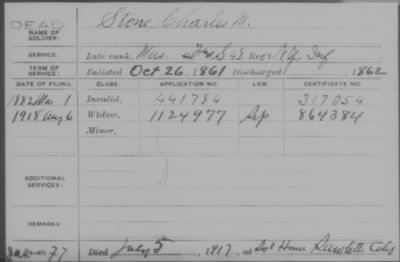 DEAD
NAME OF SOLDIER: Stone, Charles M.
SERVICE: Late rank, Mus. F & S 48 Reg't N.Y. Inf
TERM OF SERVICE: Enlisted Oct 26, 1861 Discharged , 1862
DATE OF FILING. CLASS. APPLICATION NO. LAW. CERTIFICATE NO.
1882 Mar 1 Invalid, 441784 317054
1918 Aug 6 Widow, 1124977 Sep 864384
Minor,
ADDITIONAL SERVICES:
REMARKS:
77 Died July 5, 1917, at Sol Home Sawtelle Calif